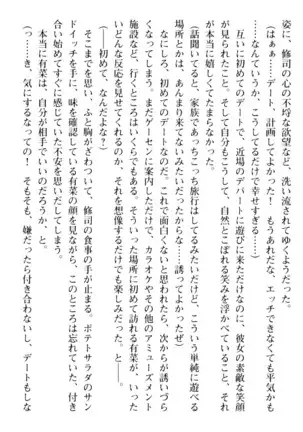 姿に、修司の心の不埒な欲望など、洗い流されてゆくようだった。
（はぁぁ……デート、計画してよかった！　もうあれだな、エッチできなくても平気かも
……なんていうか、こうしてるだけで幸せすぎる……）
　互いに初めてのデートで、近場のデパートに遊びに来ただけなのに、彼女の素敵な笑顔
が見られたこと。そして自分もこうして、自然とこぼれる笑みを浮かべていること。それ
が本当に嬉しくてたまらなかった。
（話聞いてると、家族であっちこっち旅行はしてるみたいだけど、こういう単純に遊べる
場所とかは、あんまり来てないみたいだったからな……誘ってよかったぜ）
　なにしろ、初めてのデートなのだ。これで面白くないと思われたら、次から誘いづら
くなってしまう。まだゲーセンに案内しただけで、カラオケやその他のアミューズメント
施設など、行くところはいくらでもある。そういった場所に初めて訪れる有菜が、いった
いどんな反応を見せてくれるのか、それを想像するだけでも楽しみだった、と――。
（――初めて、なんだよな？）
　そこまでを思い、ふと胸がざわついて、修司の食事の手が止まる。ポテトサラダのサン
ドイッチを手に、味を確認している有菜の顔を見ながら、このところは忘れていた、付き
合い始めてすぐに感じていた不安を思いだしてしまう。
　本当に有菜は、自分が相手でいいのだろうか、と。
（っ……き、気にするなっての！　そもそも、嫌だったら付き合わないし、デートもしな